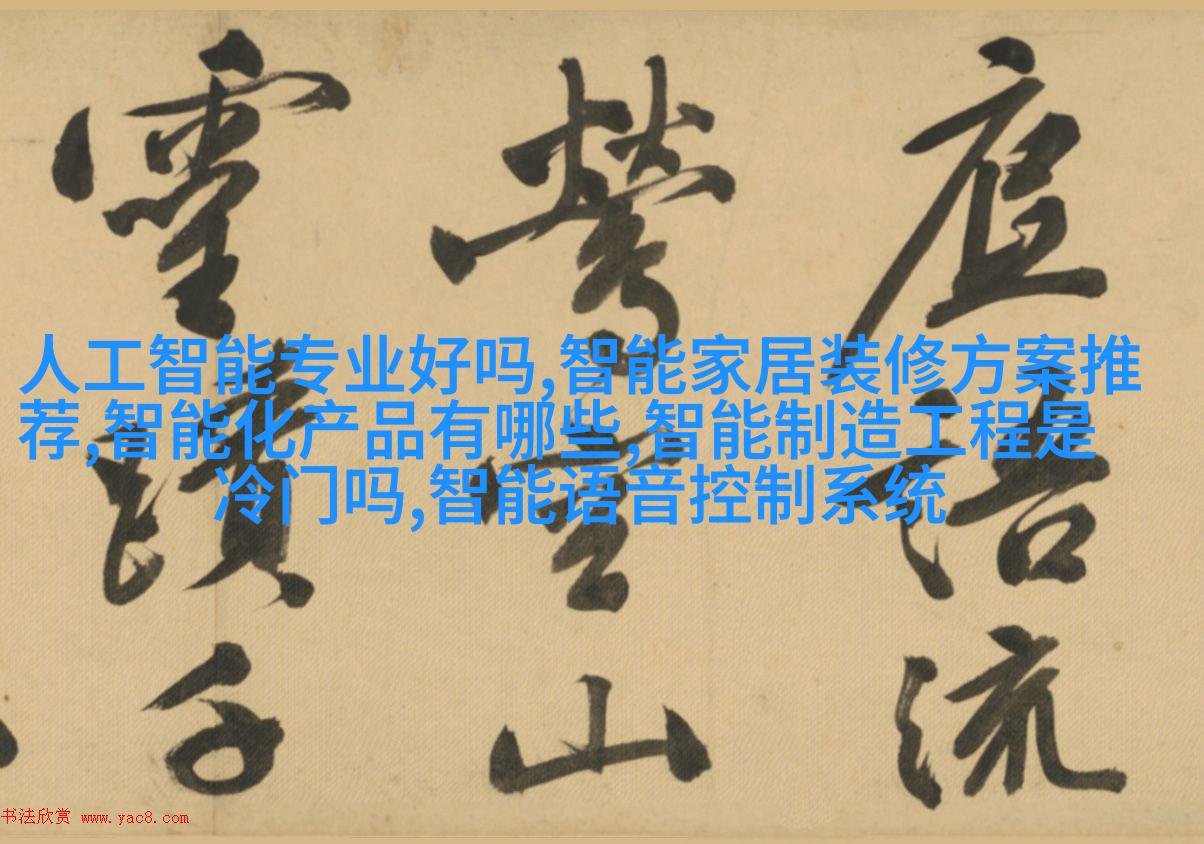 人工智能专业好吗,智能家居装修方案推
荐,智能化产品有哪些,智能制造工程是
冷门吗,智能语音控制系统
流
雲山
蹟千
书法欣赏 www.yac8.com